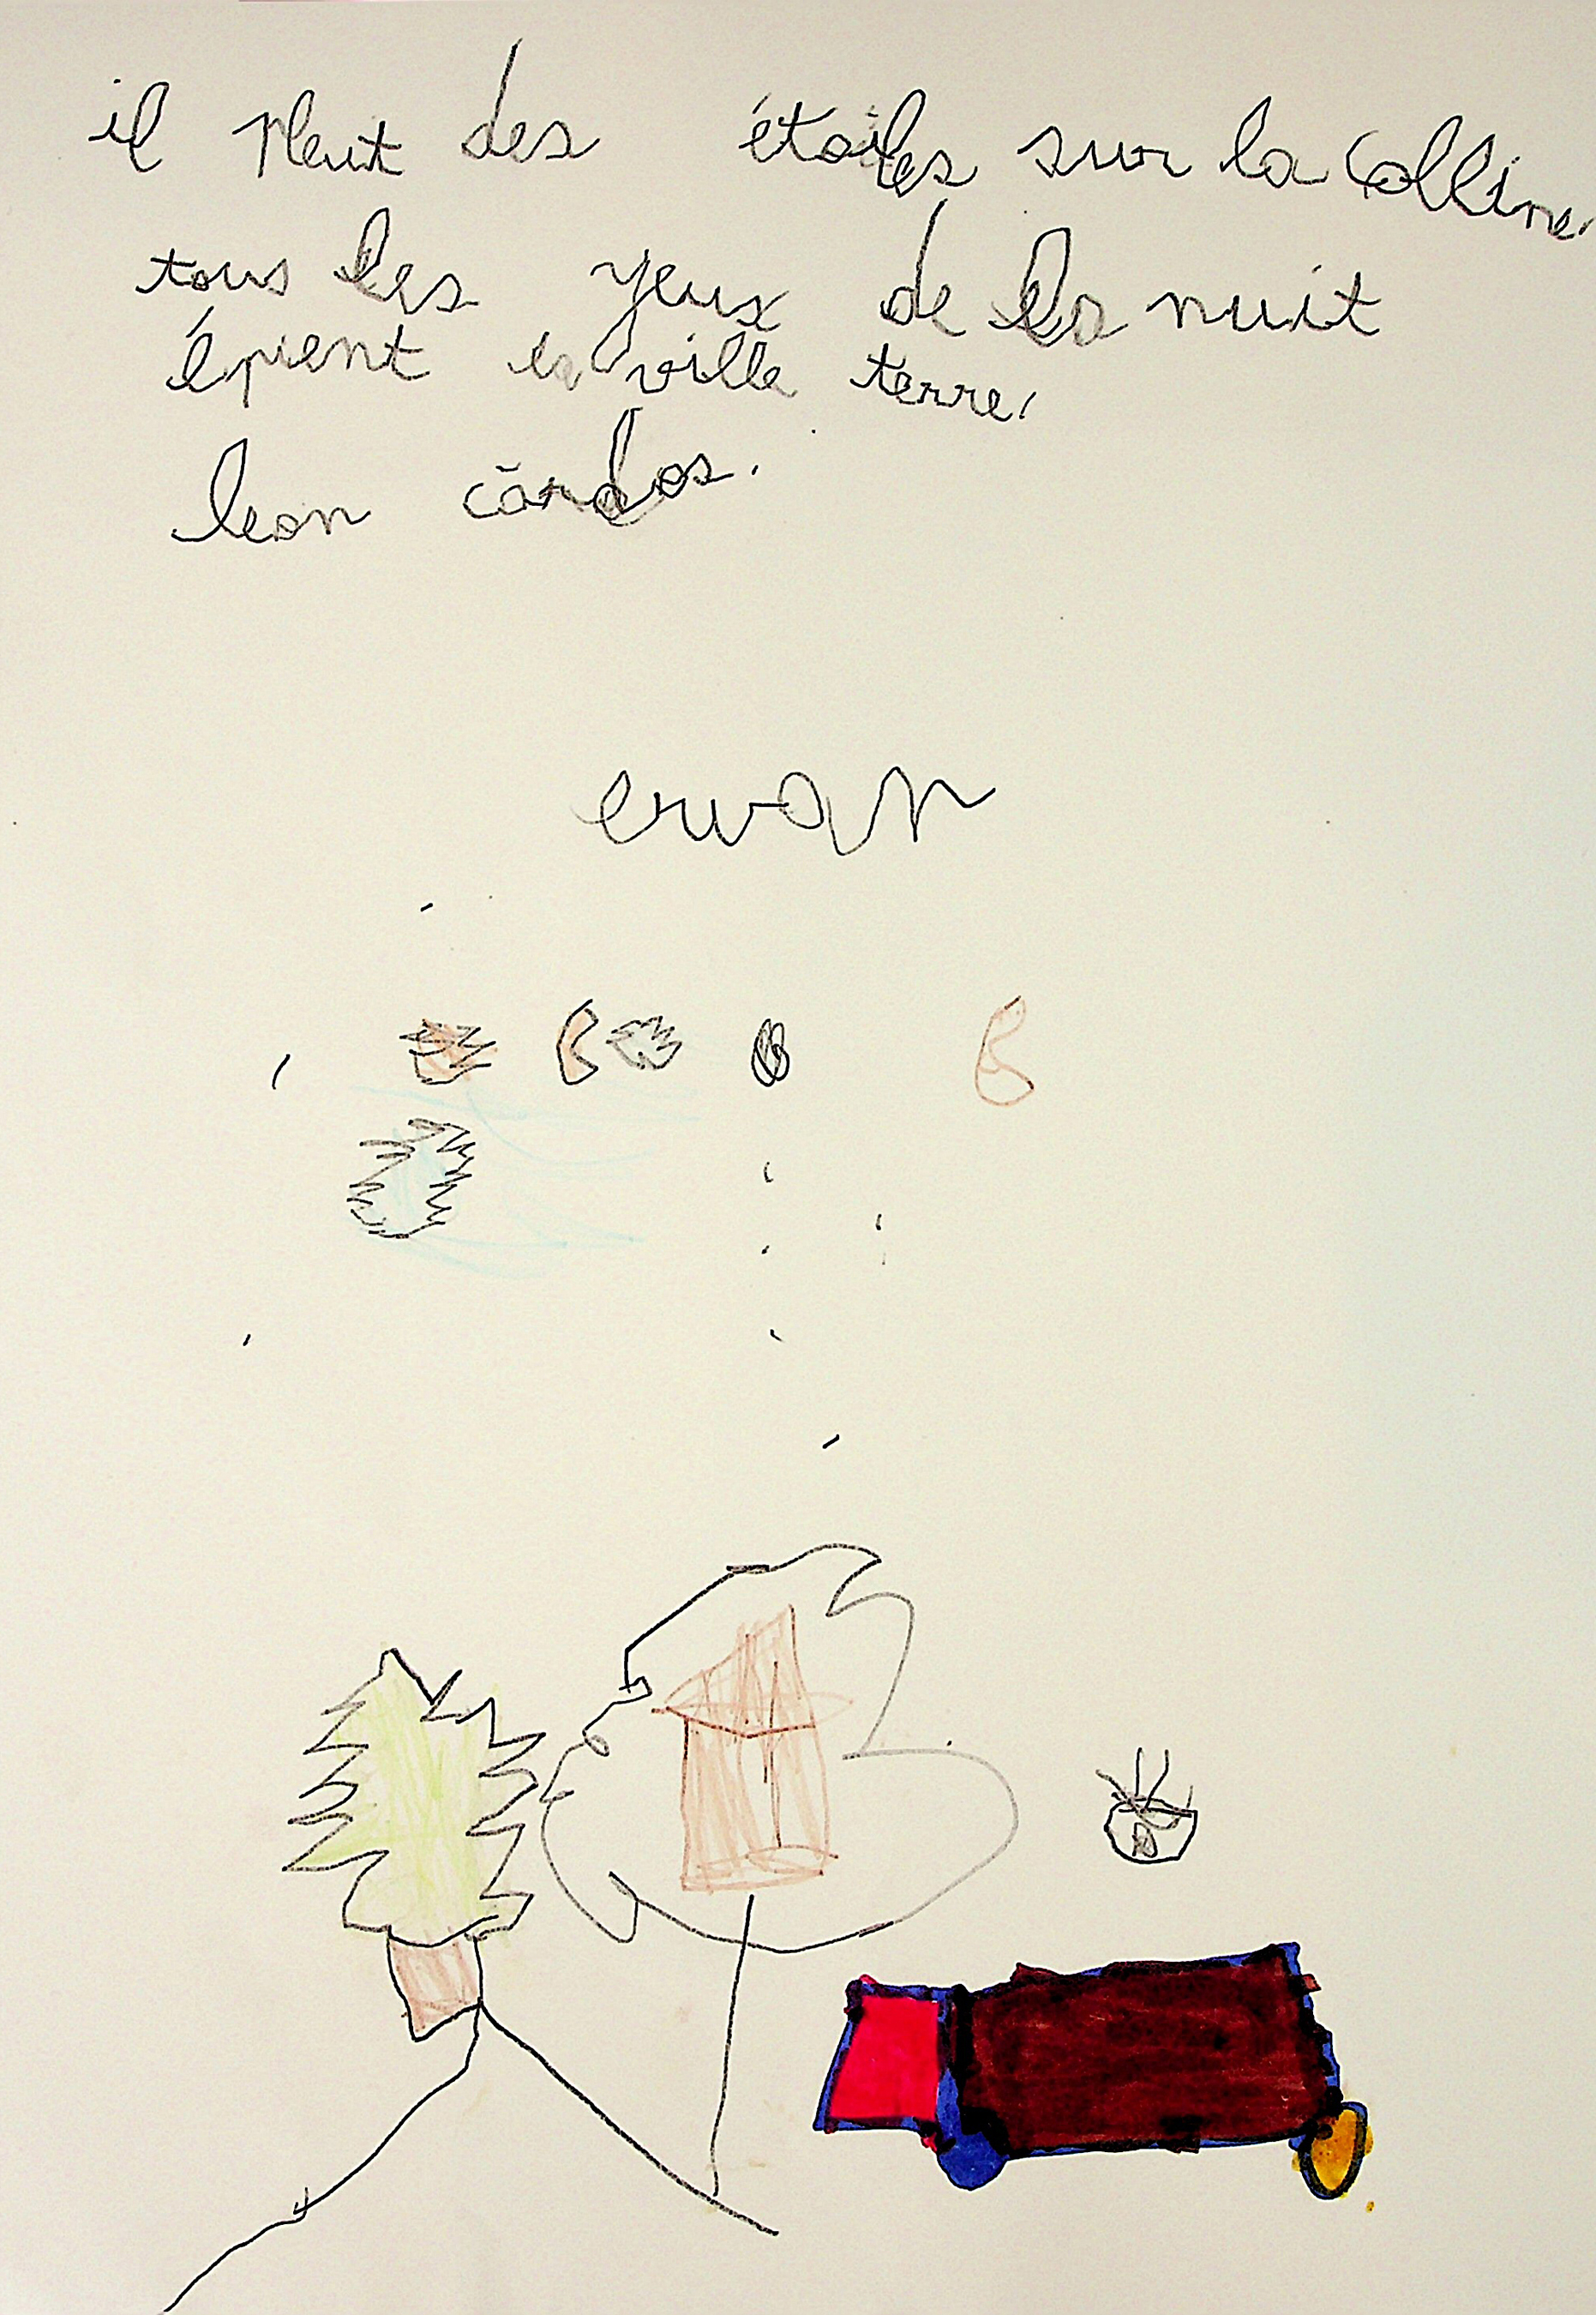 il pleut des étoiles sur la colline.
tous les yeux de la nuit
épient la ville terre.
leon cōrdes.
erwan